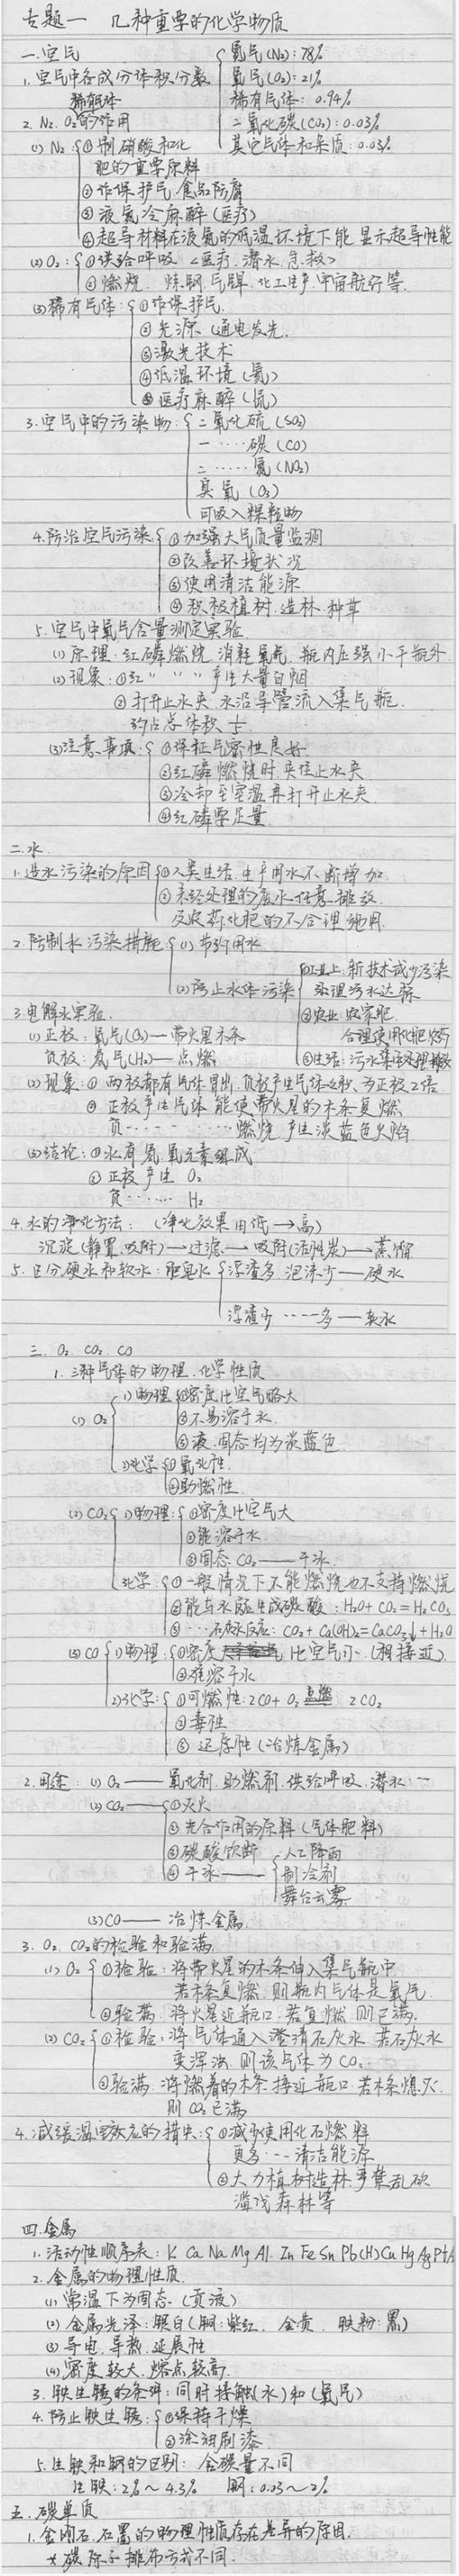 专题一 几种重要的化学物质
一.空气
1.空气中各成分体积分数
氮气(N₂): 78%
氧气(O₂): 21%
稀有气体: 0.94%
二氧化碳(CO₂): 0.03%
其它气体和杂质: 0.03%
稀有气体
2. N₂. O₂的作用
(1) N₂
①制硝酸和化
肥的重要原料
②作保护气 食品防腐
③液氮冷麻醉(医疗)
④超导材料在液氮的低温环境下能显示超导性能
(2) O₂:
①供给呼吸 <医疗.潜水.急救>
②燃烧. 炼钢.气焊.化工生产.宇宙航行等.
(3)稀有气体:
①作保护气.
②光源(通电发光.
③激光技术
④低温环境(氦)
⑤医疗麻醉(氙)
3.空气中的污染物:
二氧化硫(SO₂)
一·····碳(CO)
二·····氮(NO₂)
臭氧(O₃)
可吸入颗粒物
4.防治空气污染.
①加强大气质量监测
②改善环境状况
③使用清洁能源
④积极植树.造林.种草
5.空气中氧气含量测定实验
(1)原理:红磷燃烧.消耗氧气.瓶内压强小于瓶外.
(2)现象:①红" " "产生大量白烟
②打开止水夹.水沿导管流入集气瓶.
约占总体积 1/5
(3)注意事项:
①保证气密性良好.
②红磷燃烧时.夹住止水夹
③冷却至室温再打开止水夹.
④红磷要足量.
二.水
1.造水污染的原因
①人类生活.生产用水不断增加
②未经处理的废水任意排放.
农药化肥的不合理施用.
2.防制水污染措施
(1)节约用水
(2)防止水体污染
①工业上.新技术减少污染
处理污水达标
②农业:农家肥.
合理使用化肥农药
③生活:污水集中处理排放
3.电解水实验.
(1)正极:氧气(O₂)—带火星木条
负极:氢气(H₂)—点燃
(2)现象:①两极都有气体冒出.负极产生气体体积为正极2倍
②正极产生气体能使带火星的木条复燃
负·········燃烧.产生淡蓝色火焰
(3)结论:①水有氢.氧元素组成
②正极产生 O₂
负······ H₂
4.水的净化方法: (净化效果由低→高)
沉淀(静置.吸附)→过滤→吸附(活性炭)→蒸馏
5.区分硬水和软水:肥皂水
浮渣多.泡沫少—硬水
浮渣少·····多—软水
三. O₂. CO₂. CO
1.三种气体的物理.化学性质
(1) O₂
1)物理
①密度比空气略大
②不易溶于水.
③液.固态均为淡蓝色
2)化学
①氧化性.
②助燃性.
(2) CO₂
1)物理:
①密度比空气大
②能溶于水.
③固态CO₂——干冰.
化学:
①一般情况下不能燃烧也不支持燃烧
②能与水反应生成碳酸: H₂O+CO₂=H₂CO₃
③···石灰水反应: CO₂+Ca(OH)₂=CaCO₃↓+H₂O
(3) CO
1)物理:
①密度比空气小.(相接近)
②难溶于水
2)化学:
①可燃性: 2CO+O₂ 点燃 2CO₂
②毒性
③还原性(冶炼金属)
2.用途: (1) O₂——氧化剂.助燃剂.供给呼吸.潜水···
(2) CO₂—
①灭火
②光合作用的原料(气体肥料)
③碳酸饮料
④干冰——
人工降雨
制冷剂
舞台云雾
(3) CO—— 冶炼金属.
3. O₂. CO₂的检验和验满.
(1) O₂
①检验:将带火星的木条伸入集气瓶中.
若木条复燃.则瓶内气体是氧气.
②验满.将火星近瓶口.若复燃.则已满.
(2) CO₂
①检验:将气体通入澄清石灰水.若石灰水
变浑浊.则该气体为CO₂.
②验满:将燃着的木条接近瓶口.若木条熄灭.
则CO₂已满
4.减缓温室效应的措失:
①减少使用化石燃料
更多···清洁能源
②大力植树造林.严禁乱砍
滥伐森林等
四.金属
1.活动性顺序表: K Ca Na Mg Al. Zn Fe Sn Pb (H) Cu Hg Ag Pt A
2.金属的物理性质.
(1)常温下为固态.(贡液)
(2)金属光泽:银白(铜:紫红. 金黄. 铁粉:黑)
(3)导电.导热.延展性
(4)密度较大.熔点较高.
3.铁生锈的条件:同时接触(水)和(氧气)
4.防止铁生锈:
①保持干燥
②涂油刷漆.
5.生铁和钢的区别: 含碳量不同
生铁: 2%~4.3% 钢: 0.03~2%
五.碳单质
1.金刚石.石墨的物理性质存在差异的原因.
碳原子排布方式不同.